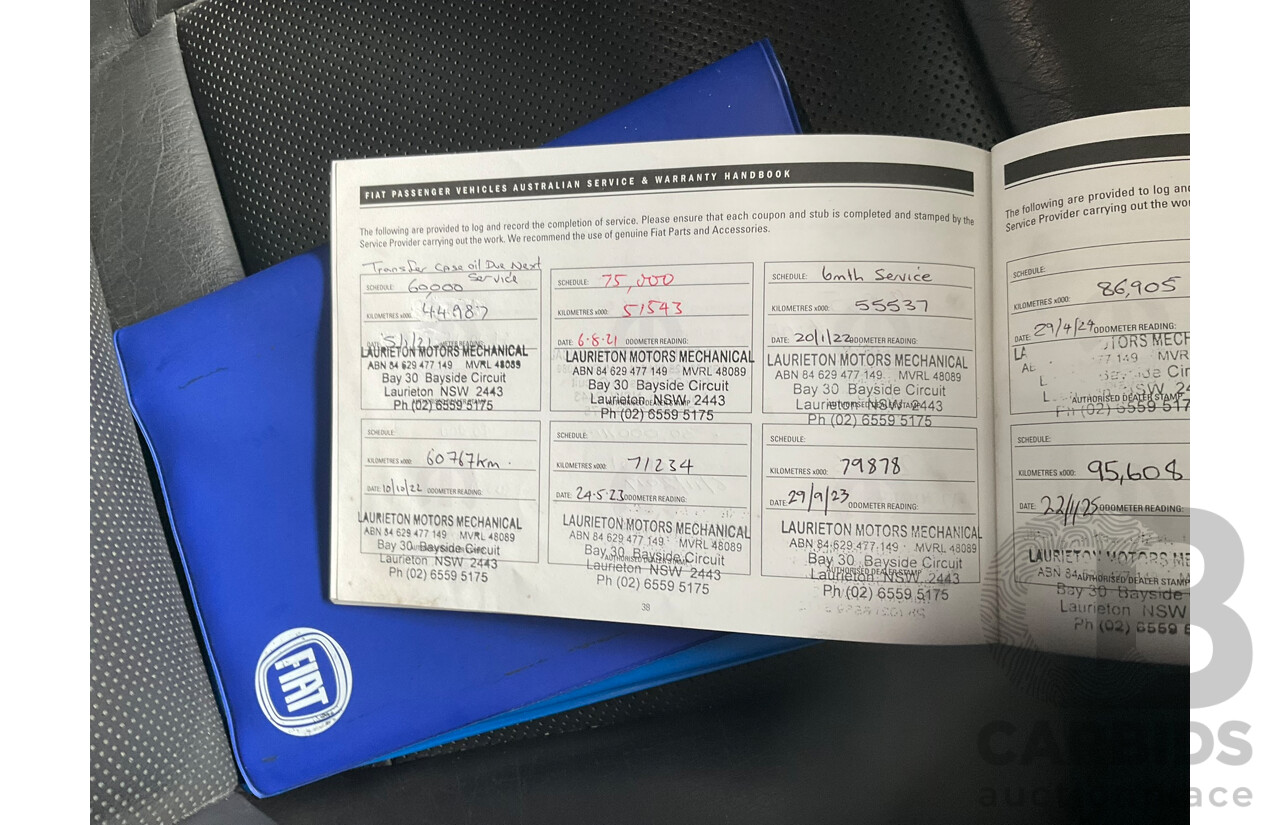 FIAT PASSENGER VEHICLES AUSTRALIAN SERVICE & WARRANTY HANDBOOK
The following are provided to log and record the completion of service. Please ensure that each coupon and stub is completed and stamped by the
Service Provider carrying out the work. We recommend the use of genuine Fiat Parts and Accessories.
Transfer Case oil Due Next
Service
SCHEDULE: 60,000
KILOMETRES x000: 44987
DATE:
LAURIETON MOTORS MECHANICAL
ABN 84 629 477 149 MVRL 48089
Bay 30 Bayside Circuit
Laurieton NSW 2443
Ph (02) 6559 5175
SCHEDULE: 75,000
KILOMETRES x000: 51543
DATE: 6.8.21 ODOMETER READING:
LAURIETON MOTORS MECHANICAL
ABN 84 629 477 149 MVRL 48089
Bay 30 Bayside Circuit
Laurieton NSW 2443
Ph (02) 6559 5175
SCHEDULE: 6mth Service
KILOMETRES x000: 55537
DATE: 20/1/22 ODOMETER READING:
LAURIETON MOTORS MECHANICAL
ABN 84 629 477 149 MVRL 48089
Bay 30 Bayside Circuit
Laurieton NSW 2443
Ph (02) 6559 5175
SCHEDULE:
KILOMETRES x000: 60767km.
DATE: 10/10/22 ODOMETER READING:
LAURIETON MOTORS MECHANICAL
ABN 84 629 477 149 MVRL 48089
Bay 30 Bayside Circuit
Laurieton NSW 2443
Ph (02) 6559 5175
SCHEDULE:
KILOMETRES x000: 71234
DATE: 24.5.23 ODOMETER READING:
LAURIETON MOTORS MECHANICAL
ABN 84 629 477 149 MVRL 48089
Bay 30 Bayside Circuit
AUTHORISED DEALER STAMP
Laurieton NSW 2443
Ph (02) 6559 5175
SCHEDULE:
KILOMETRES x000: 79878
DATE: 29/9/23
LAURIETON MOTORS MECHANICAL
ABN 84 629 477 149 MVRL 48089
Bay 30 Bayside Circuit
AUTHORISED DEALER STAMP
Laurieton NSW 2443
Ph (02) 6559 5175
38
The following are provided to log and
Service Provider carrying out the
SCHEDULE:
KILOMETRES x000: 86,905
DATE: 29/4/24 ODOMETER READING:
AUTHORISED DEALER STAMP
SCHEDULE:
KILOMETRES x000: 95,608
DATE: 22/1/25 ODOMETER READING:
LAURIETON MOTORS
AUTHORISED DEALER STAMP
Bay 30 Bayside
Laurieton NSW
Ph (02) 6559
FIAT